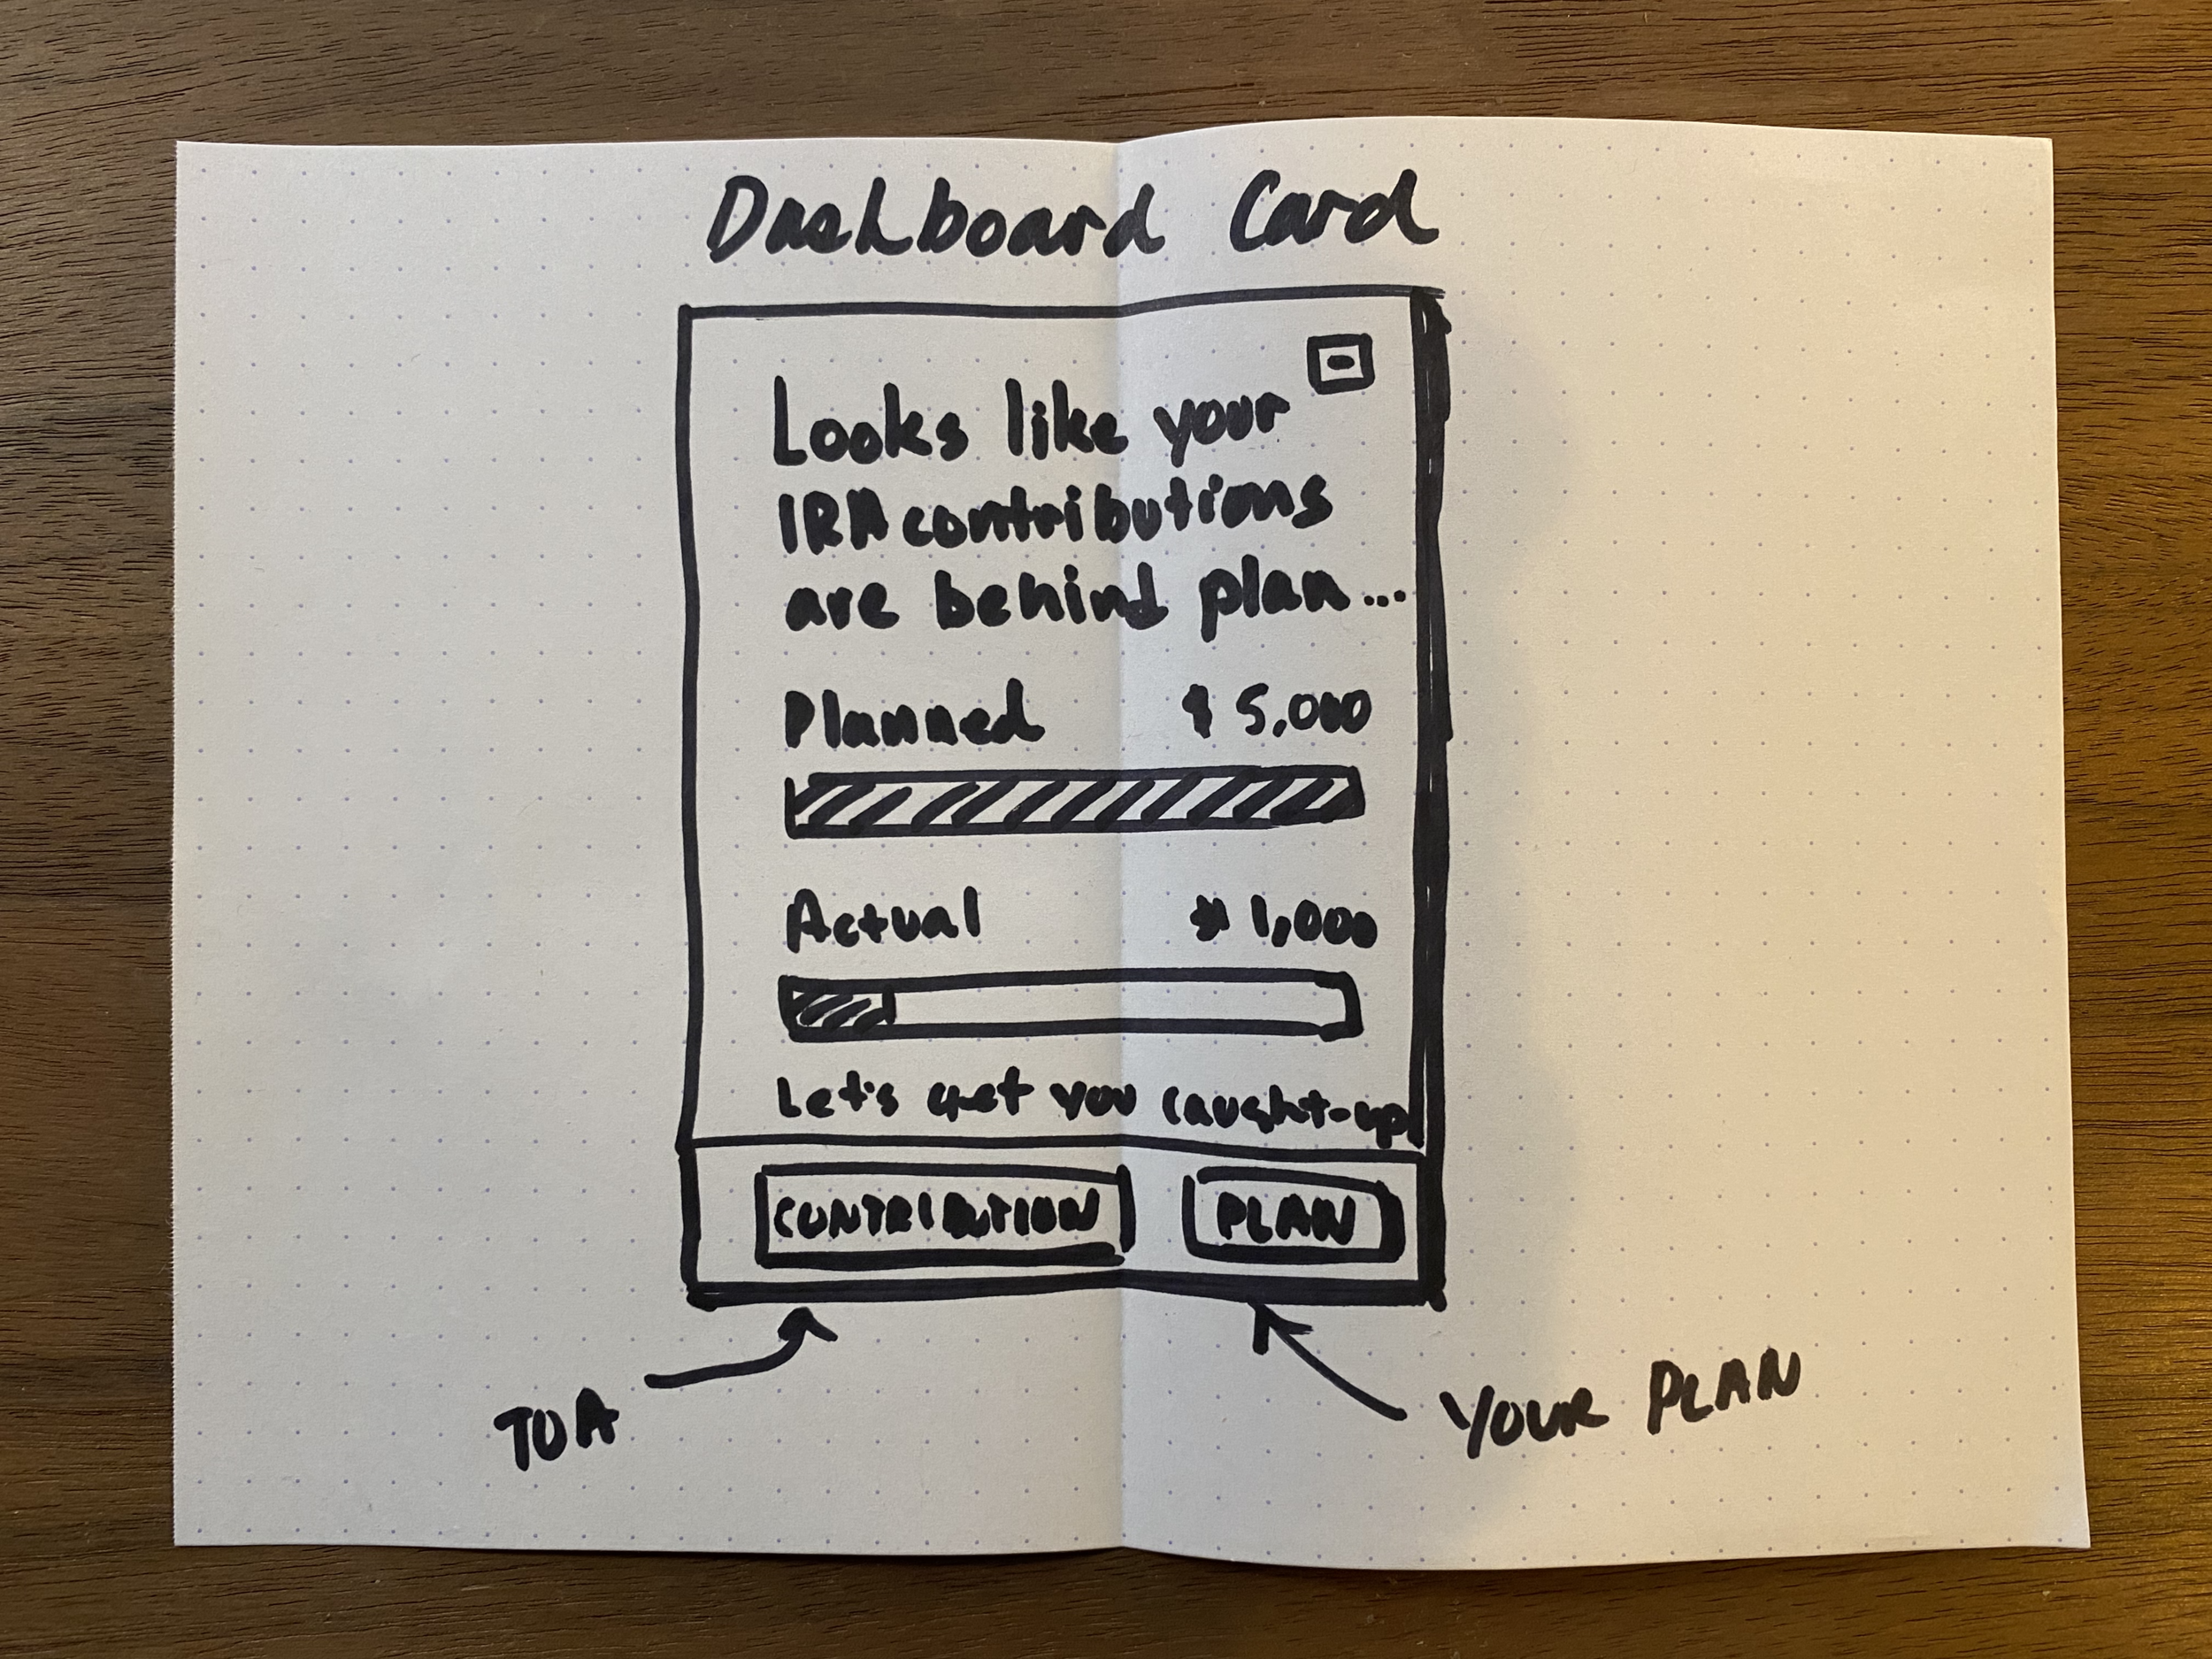 Dashboard Card
Looks like your
IRA contributions
are behind plan...
Planned $ 5,000
Actual $ 1,000
Let's get you caught-up
CONTRIBUTION PLAN
TOA
YOUR PLAN